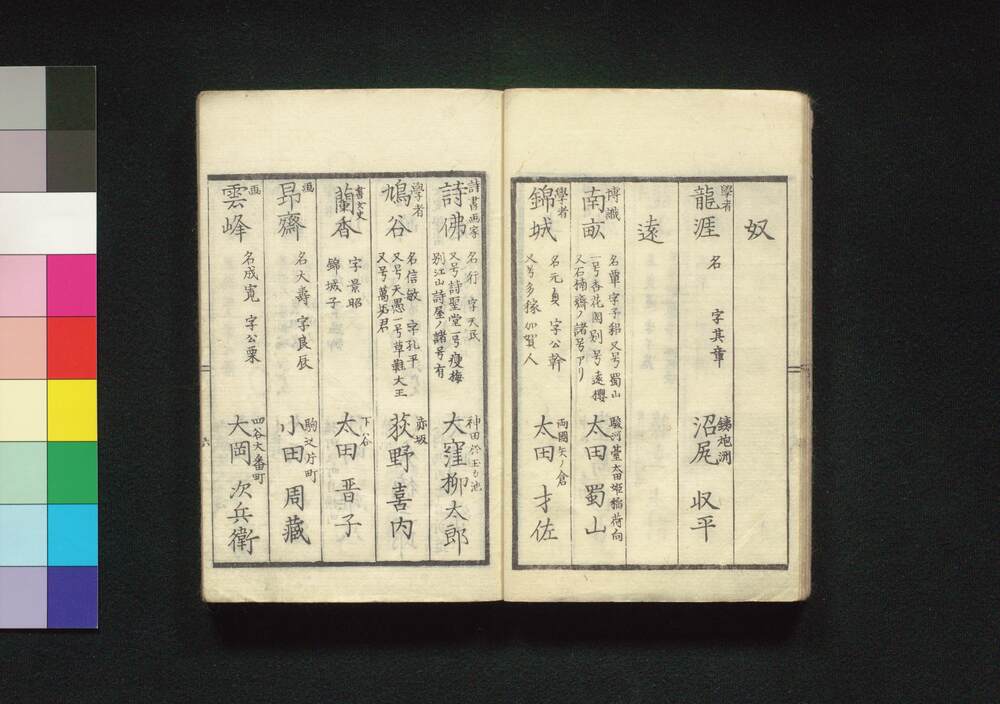 奴
學者
龍涯
名 字其章
鐵炮洲
沼尻 収平
遠
博識
南畝
名覃 字子耜 又号蜀山
一号杏花園 別号遠櫻
又石楠齋ノ諸号アリ
駿河臺太田姫稲荷向
太田 蜀山
學者
錦城
名元貞 字公幹
又号多稼 加賀人
両國矢ノ倉
太田 才佐
詩書画家
詩佛
名行 字天民
又号詩聖堂 一号瘦梅
別江山詩屋ノ諸号有
神田於玉ヶ池
大窪柳太郎
學者
鳩谷
名信敏 字孔平
又号天愚 一号草鞋大王
又号萬垢君
赤坂
荻野 喜内
蘭香
字景昭
錦城子
下谷
太田 晋子
画
昂齋
名大壽 字良辰
駒込片町
小田 周藏
画
雲峰
名成寛 字公栗
四谷大番町
大岡 次兵衛
六